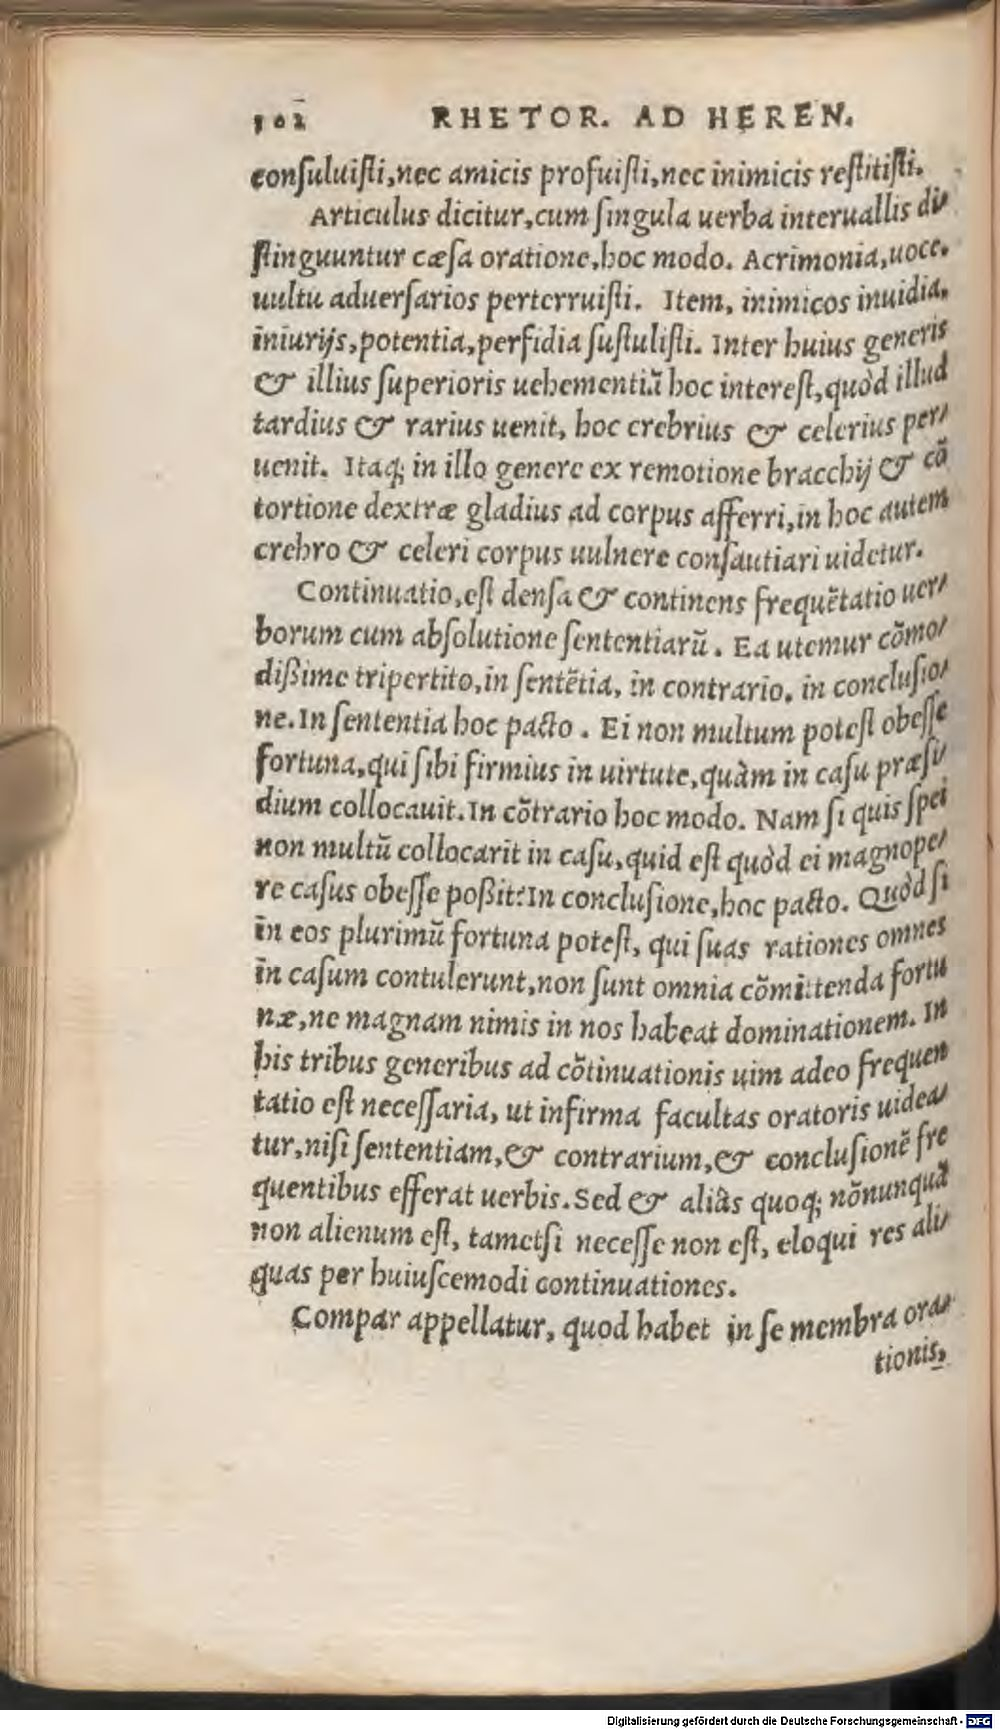 102 RHETOR. AD HEREN.
conſuluiſti,nec amicis profuiſti,nec inimicis reſtitiſti.
Articulus dicitur,cum ſingula uerba interuallis di/
ſtinguuntur cæſa oratione,hoc modo. Acrimonia,uoce.
uultu aduerſarios perterruiſti. Item, inimicos inuidia,
iniurijs,potentia,perfidia ſuſtuliſti. Inter huius generis
& illius ſuperioris uehementiā hoc intereſt,quòd illud
tardius & rarius uenit, hoc crebrius & celerius per/
uenit. Itaq; in illo genere ex remotione bracchij & cō
tortione dextræ gladius ad corpus afferri,in hoc autem
crebro & celeri corpus uulnere conſautiari uidetur.
Continuatio,eſt denſa & continens frequētatio uer/
borum cum abſolutione ſententiarū. Ea utemur cōmo/
dißime tripertito,in ſentētia, in contrario, in concluſio/
ne.In ſententia hoc pacto. Ei non multum poteſt obeſſe
fortuna,qui ſibi firmius in uirtute,quàm in caſu præſi/
dium collocauit.In cōtrario hoc modo. Nam ſi quis ſpei
non multū collocarit in caſu,quid eſt quòd ei magnope/
re caſus obeſſe poßit?In concluſione,hoc pacto. Quòd ſi
in eos plurimū fortuna poteſt, qui ſuas rationes omnes
in caſum contulerunt,non ſunt omnia cōmittenda fortu
næ,ne magnam nimis in nos habeat dominationem. In
his tribus generibus ad cōtinuationis uim adeo frequen
tatio eſt neceſſaria, ut infirma facultas oratoris uidea/
tur,niſi ſententiam,& contrarium,& concluſionē fre
quentibus efferat uerbis.Sed & aliàs quoq; nōnunquā
non alienum eſt, tametſi neceſſe non eſt, eloqui res ali/
quas per huiuſcemodi continuationes.
Compar appellatur, quod habet in ſe membra ora/
tionis,
Digitalisierung gefördert durch die Deutsche Forschungsgemeinschaft - DFG